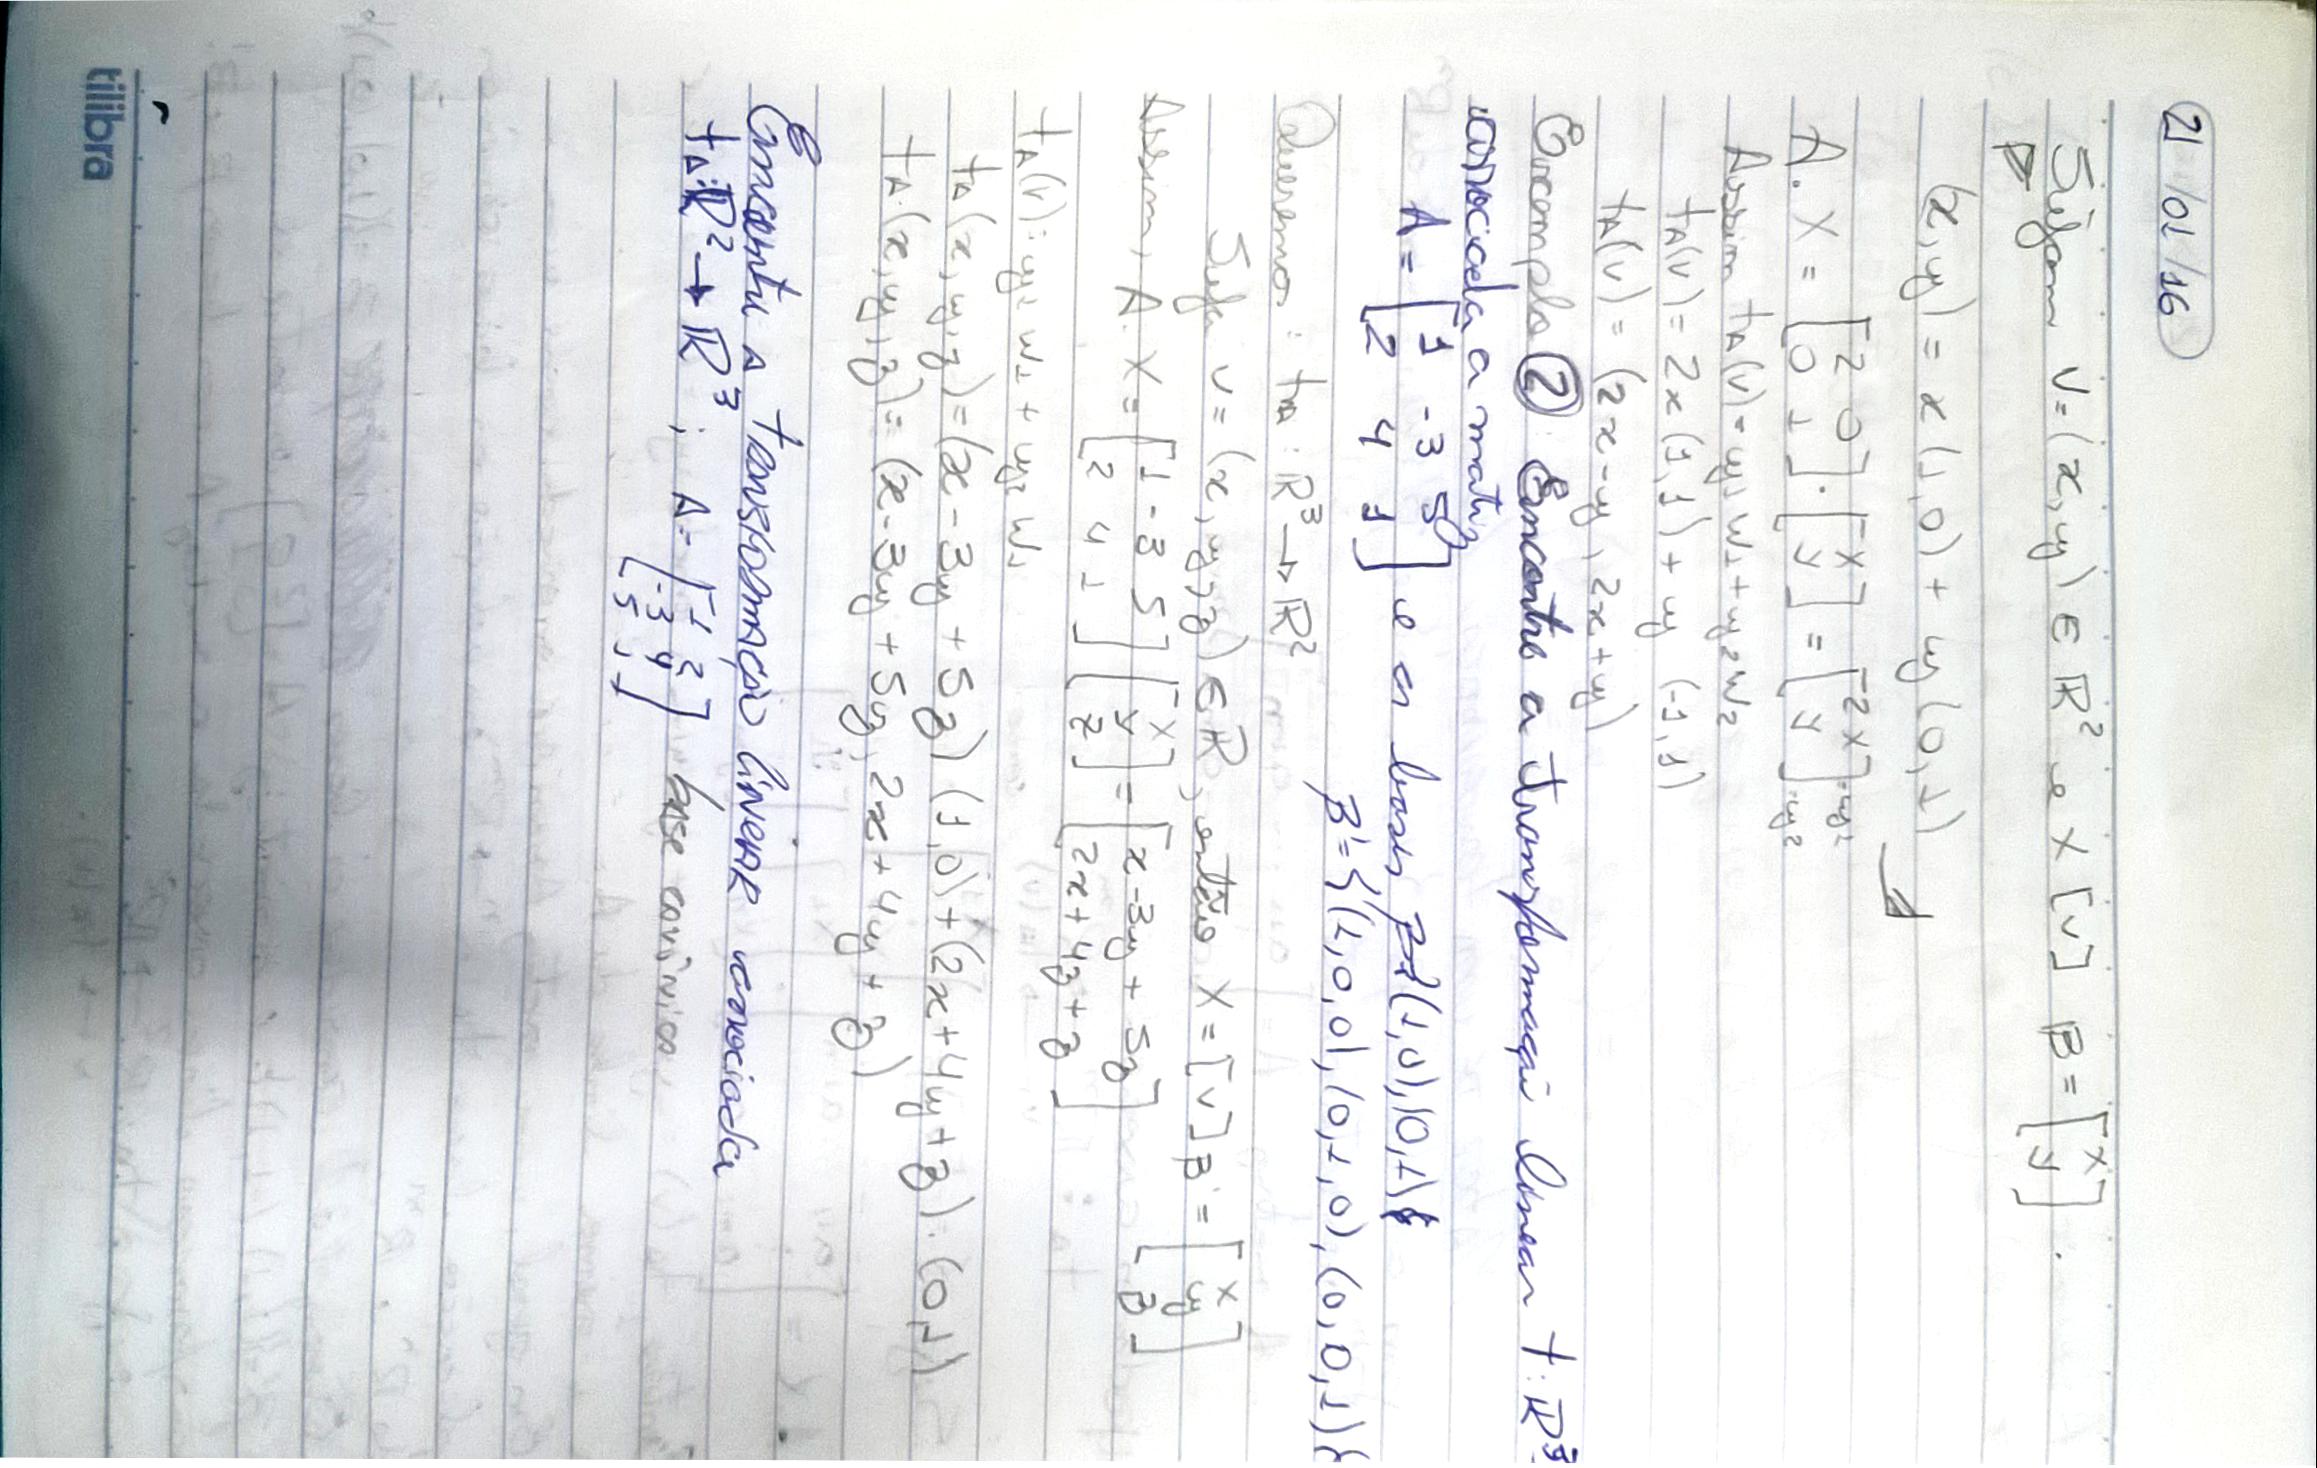 21 /01/16
Sejam V=(x,y) ∈ R² e X [v] B = [x
y] .
(x,y) = x(1,0) + y(0,1)
A. X = [2 0
0 1] . [x
y] = [2x
y] .y1
.y2
Assim tA(v) = y1 w1 + y2 w2
tA(v) = 2x(1,1) + y (-1,1)
tA(v) = (2x-y, 2x+y)
Exemplo 2 Encontre a transformação linear t: R³
associada a matiz
A = [1 -3 5
2 4 1] e as bases B={(1,0),(0,1)}
B'={(1,0,0),(0,1,0),(0,0,1)}
Queremos: tA: R³ → R²
Seja v = (x,y,z) ∈ R, então X = [v]B' = [x
y
z]
Assim, A. X = [1 -3 5
2 4 1] [x
y
z] = [x-3y + 5z
2x+4z+z]
tA(v): y1 w1 + y2 w2
tA(x,y,z)=(x-3y+5z) (1,0)+(2x+4y+z).(0,1)
tA.(x,y,z)= (x-3y+5z, 2x+4y+z)
Encontre a transformação linear associada
tA:R² → R³ ; A= [1 2
-3 4
5 1] base canônica
tilibra